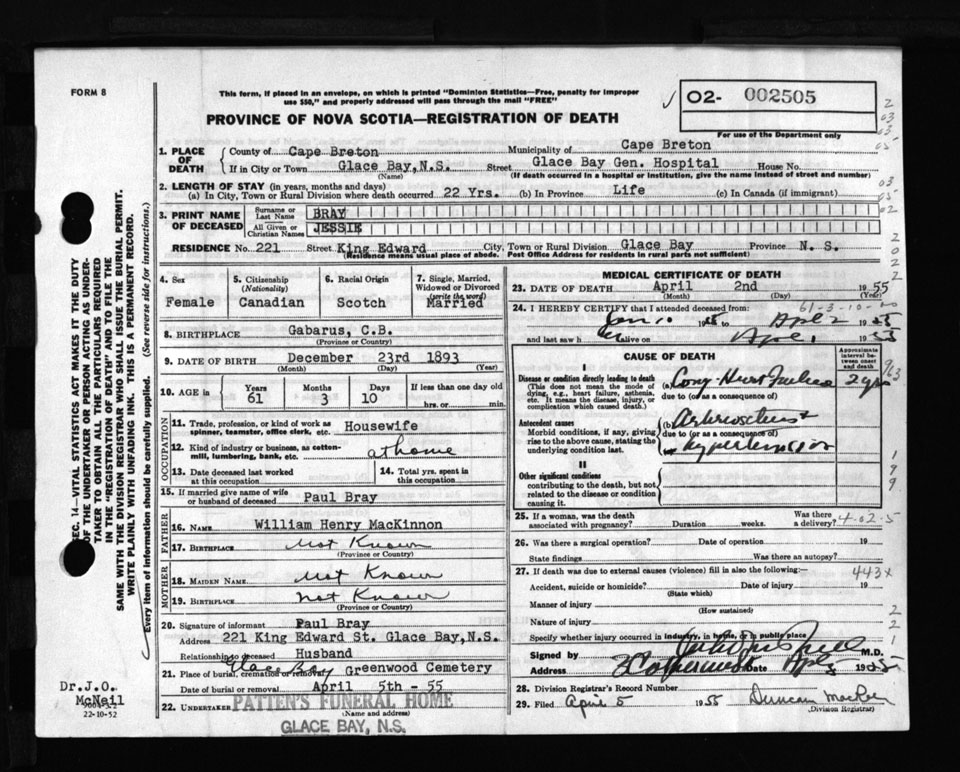 FORM 8
This form, if placed in an envelope, on which is printed "Dominion Statistics—Free, penalty for improper
use $50," and properly addressed will pass through the mail "FREE"
02- 002505
For use of the Department only
PROVINCE OF NOVA SCOTIA—REGISTRATION OF DEATH
1. PLACE OF DEATH
County of Cape Breton Municipality of Cape Breton
If in City or Town Glace Bay, N.S. Street Glace Bay Gen. Hospital House No.
(Name) (If death occurred in a hospital or institution, give the name instead of street and number)
2. LENGTH OF STAY (in years, months and days)
(a) In City, Town or Rural Division where death occurred 22 Yrs. (b) In Province Life (c) In Canada (if immigrant)
3. PRINT NAME OF DECEASED
Surname or Last Name BRAY
All Given or Christian Names JESSIE
RESIDENCE No. 221 Street King Edward City, Town or Rural Division Glace Bay Province N. S.
(Residence means usual place of abode. Post Office Address for residents in rural parts not sufficient)
4. Sex
Female
5. Citizenship
(Nationality)
Canadian
6. Racial Origin
Scotch
7. Single, Married,
Widowed or Divorced
(write the word)
Married
8. BIRTHPLACE Gabarus, C.B.
(Province or Country)
9. DATE OF BIRTH December 23rd 1893
(Month) (Day) (Year)
10. AGE in
Years 61
Months 3
Days 10
If less than one day old
hrs. or min.
OCCUPATION
11. Trade, profession, or kind of work as
spinner, teamster, office clerk, etc. Housewife
12. Kind of industry or business, as cotton-
mill, lumbering, bank, etc. at home
13. Date deceased last worked
at this occupation
14. Total yrs. spent in
this occupation
15. If married give name of wife
or husband of deceased Paul Bray
FATHER
16. NAME William Henry MacKinnon
17. BIRTHPLACE Not Known
(Province or Country)
MOTHER
18. MAIDEN NAME Not Known
19. BIRTHPLACE not Known
(Province or Country)
20. Signature of informant Paul Bray
Address 221 King Edward St. Glace Bay, N.S.
Relationship to deceased Husband
21. Place of burial, cremation or removal Glace Bay Greenwood Cemetery
Date of burial or removal April 5th - 55
22. UNDERTAKER PATTEN'S FUNERAL HOME
(Name and address)
GLACE BAY, N.S.
MEDICAL CERTIFICATE OF DEATH
23. DATE OF DEATH April 2nd 1955
(Month) (Day) (Year)
61-3-10
24. I HEREBY CERTIFY that I attended deceased from:
and last saw h alive on
CAUSE OF DEATH
Approximate interval between onset and death
I
Disease or condition directly leading to death
(This does not mean the mode of
dying, e.g., heart failure, asthenia,
etc. It means the disease, injury, or
complication which caused death.)
(a) Cong Heart Failure 2 yrs
due to (or as a consequence of)
Antecedent causes
Morbid conditions, if any, giving
rise to the above cause, stating the
underlying condition last.
(b)
due to (or as a consequence of)
hypertension
II
Other significant conditions
contributing to the death, but not
related to the disease or condition
causing it.
25. If a woman, was the death
associated with pregnancy? Duration weeks. Was there
a delivery?
4-02-5
26. Was there a surgical operation? Date of operation 19
State findings Was there an autopsy?
27. If death was due to external causes (violence) fill in also the following:—
443x
Accident, suicide or homicide? Date of injury 19
(State which)
Manner of injury
(How sustained)
Nature of injury
Specify whether injury occurred in industry, in home, or in public place
Signed by M.D.
Address Date 1955
28. Division Registrar's Record Number
29. Filed April 5 1955 Duncan MacRae
(Division Registrar)
SEC. 14—VITAL STATISTICS ACT MAKES IT THE DUTY
OF THE UNDERTAKER OR PERSON ACTING AS UNDER-
TAKER TO OBTAIN ALL THE PARTICULARS REQUIRED
IN THE "REGISTRATION OF DEATH" AND TO FILE THE
SAME WITH THE DIVISION REGISTRAR WHO SHALL ISSUE THE BURIAL PERMIT.
WRITE PLAINLY WITH UNFADING INK. THIS IS A PERMANENT RECORD.
Every item of information should be carefully supplied. (See reverse side for instructions.)
Dr. J.O.
McNeil
22-10-52